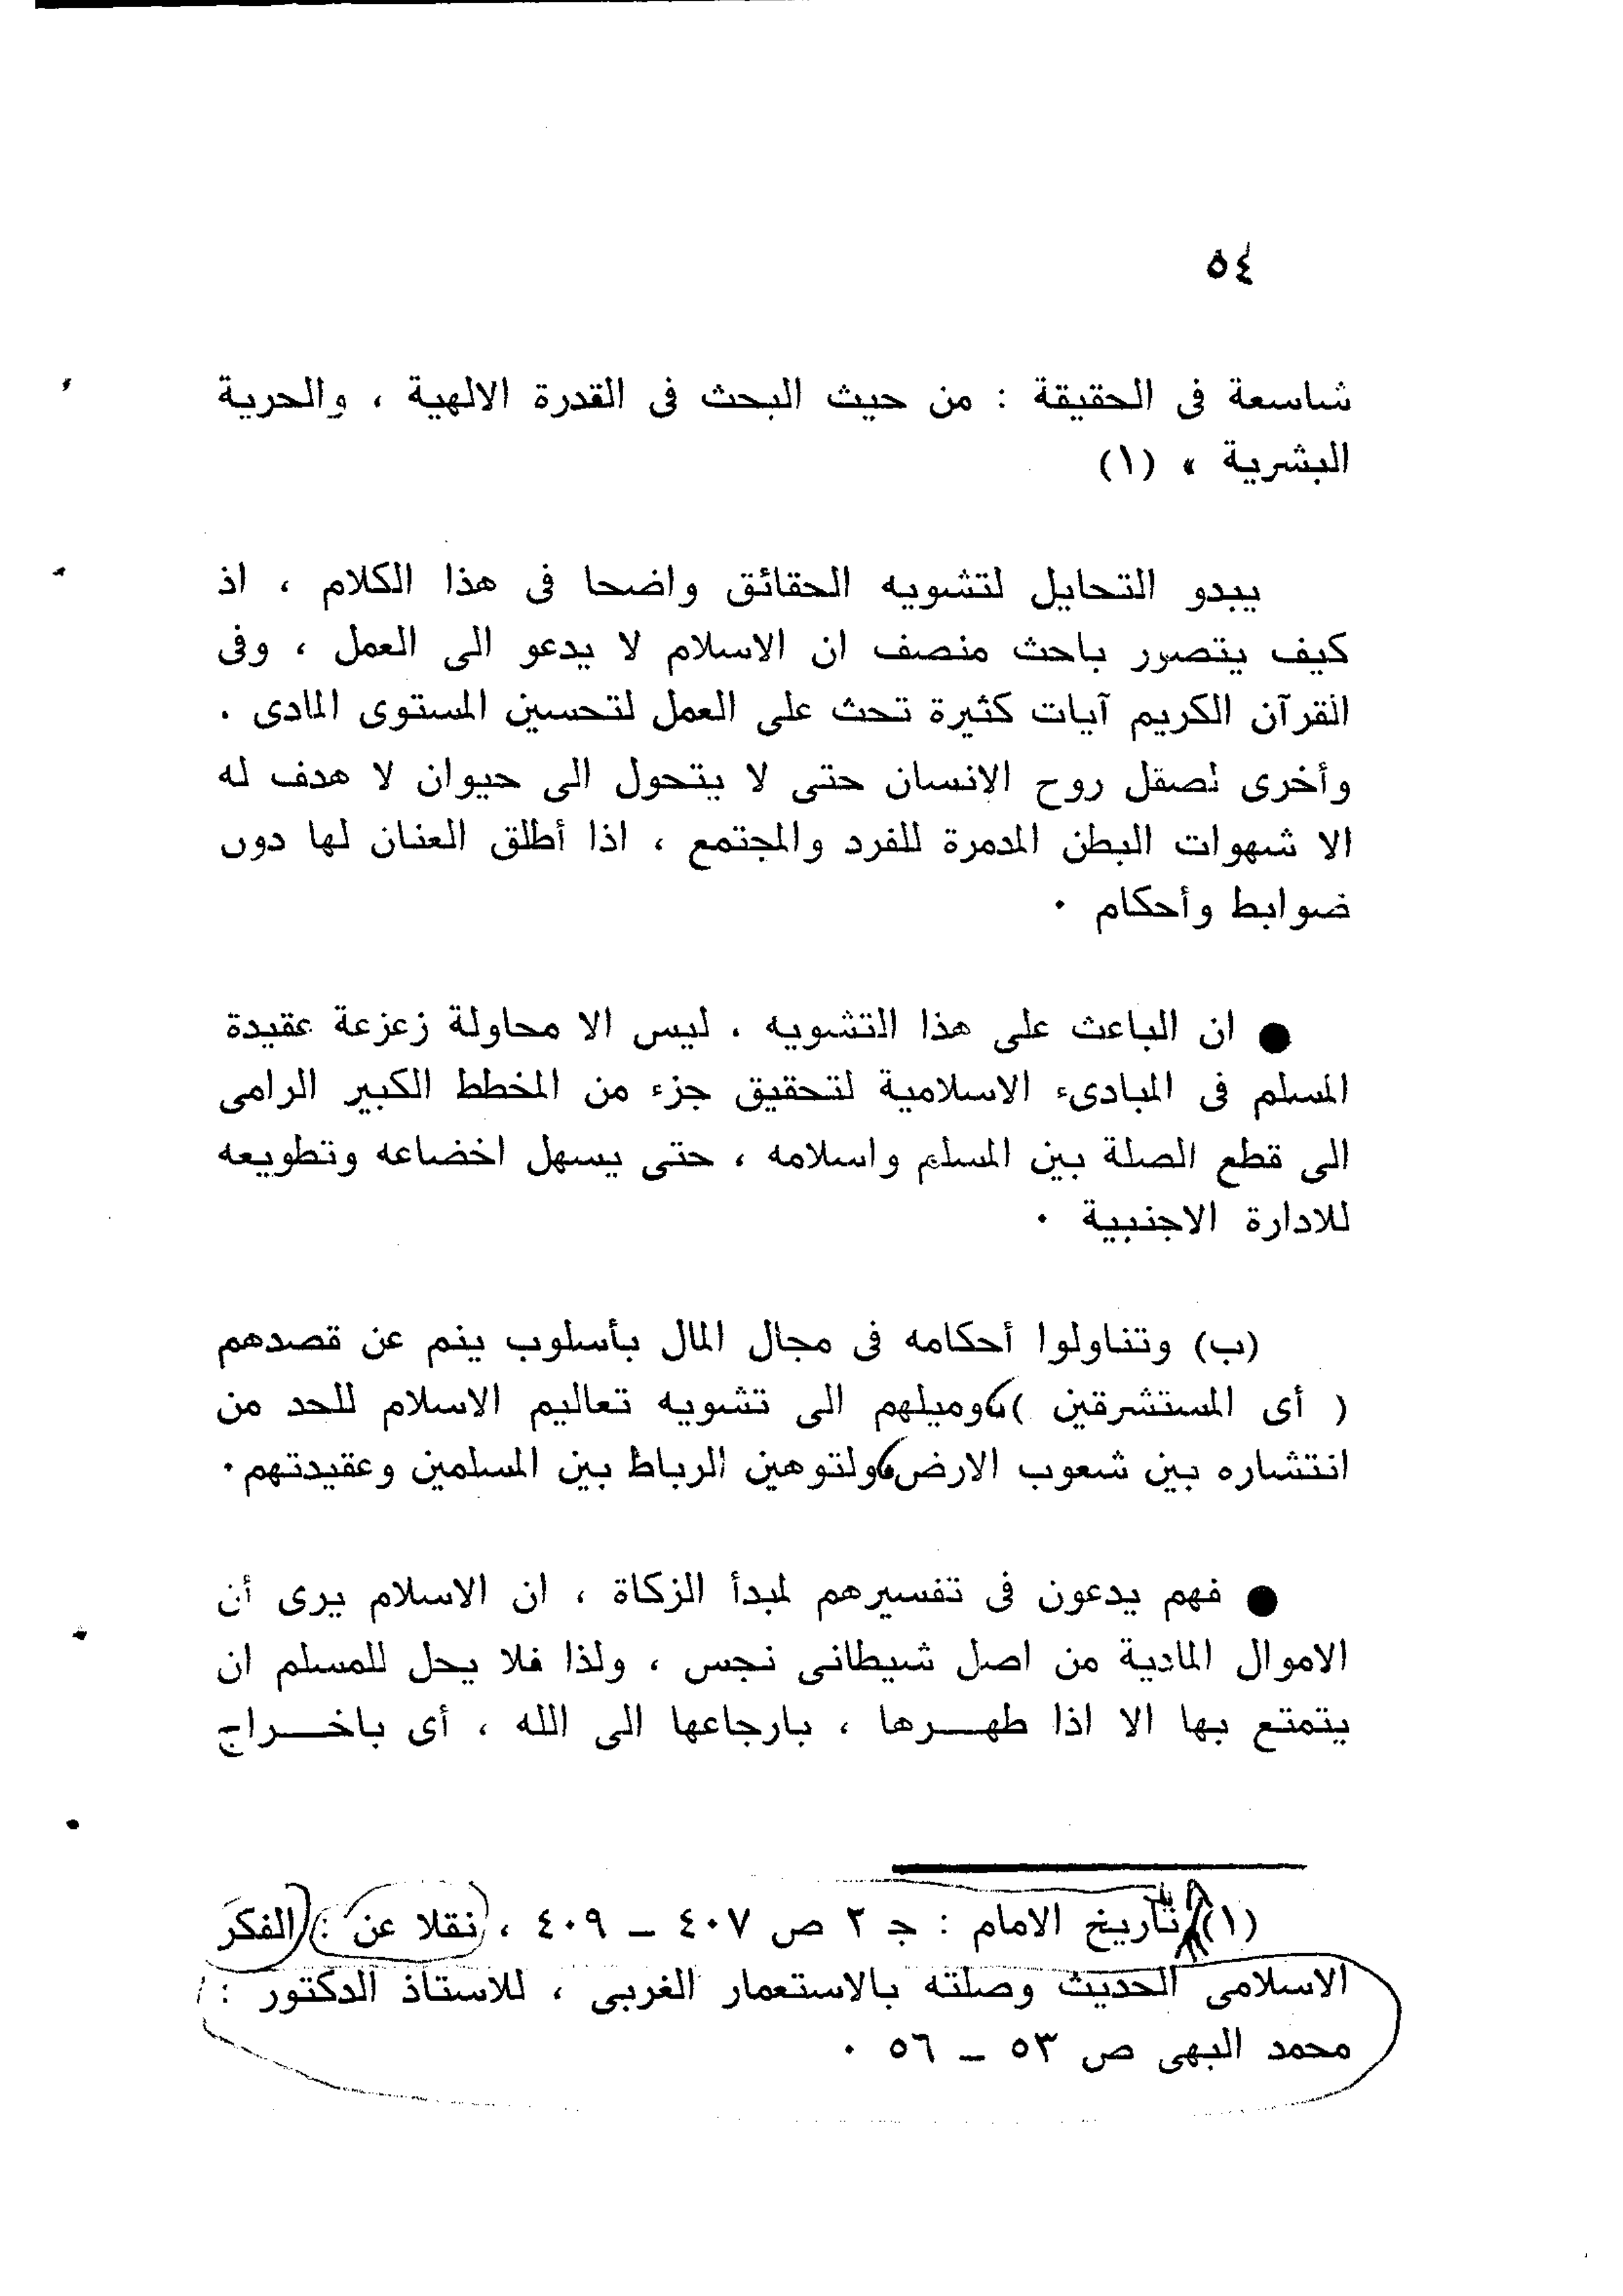 ٥٤
شاسعة فى الحقيقة : من حيث البحث فى القدرة الالهية ، والحرية
البشرية » (١)
يبدو التحايل لتشويه الحقائق واضحا فى هذا الكلام ، اذ
كيف يتصور باحث منصف ان الاسلام لا يدعو الى العمل ، وفى
القرآن الكريم آيات كثيرة تحث على العمل لتحسين المستوى المادى .
وأخرى لصقل روح الانسان حتى لا يتحول الى حيوان لا هدف له
الا شهوات البطن المدمرة للفرد والمجتمع ، اذا أطلق العنان لها دون
ضوابط وأحكام .
● ان الباعث على هذا التشويه ، ليس الا محاولة زعزعة عقيدة
المسلم فى المبادىء الاسلامية لتحقيق جزء من المخطط الكبير الرامى
الى قطع الصلة بين المسلم واسلامه ، حتى يسهل اخضاعه وتطويعه
للادارة الاجنبية .
(ب) وتناولوا أحكامه فى مجال المال بأسلوب ينم عن قصدهم
( أى المستشرقين ) ، وميلهم الى تشويه تعاليم الاسلام للحد من
انتشاره بين شعوب الارض ، ولتوهين الرباط بين المسلمين وعقيدتهم .
● فهم يدعون فى تفسيرهم لمبدأ الزكاة ، ان الاسلام يرى أن
الاموال المادية من اصل شيطانى نجس ، ولذا فلا يحل للمسلم ان
يتمتع بها الا اذا طهـــرها ، بارجاعها الى الله ، أى باخـــراج
(١) تأريخ الامام : ج ٢ ص ٤٠٧ ــ ٤٠٩ ، نقلا عن : الفكر
الاسلامى الحديث وصلته بالاستعمار الغربى ، للاستاذ الدكتور :
محمد البهى ص ٥٣ ــ ٥٦ .